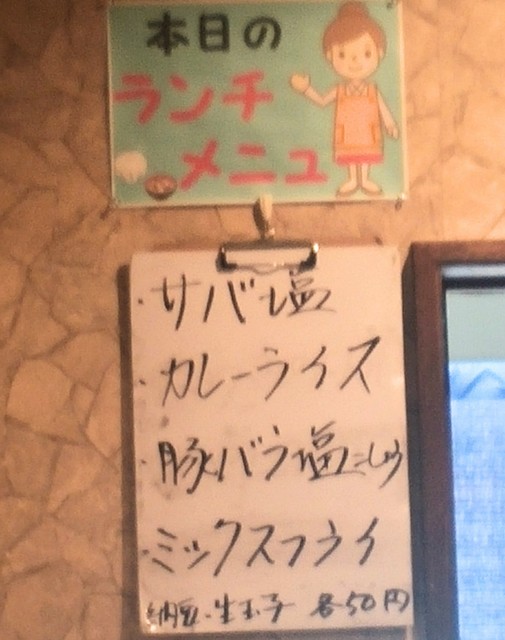 本日の
ランチ
メニュー
・サバ塩
・カレーライス
・豚バラ塩こしょう
・ミックスフライ
納豆・生玉子 各50円